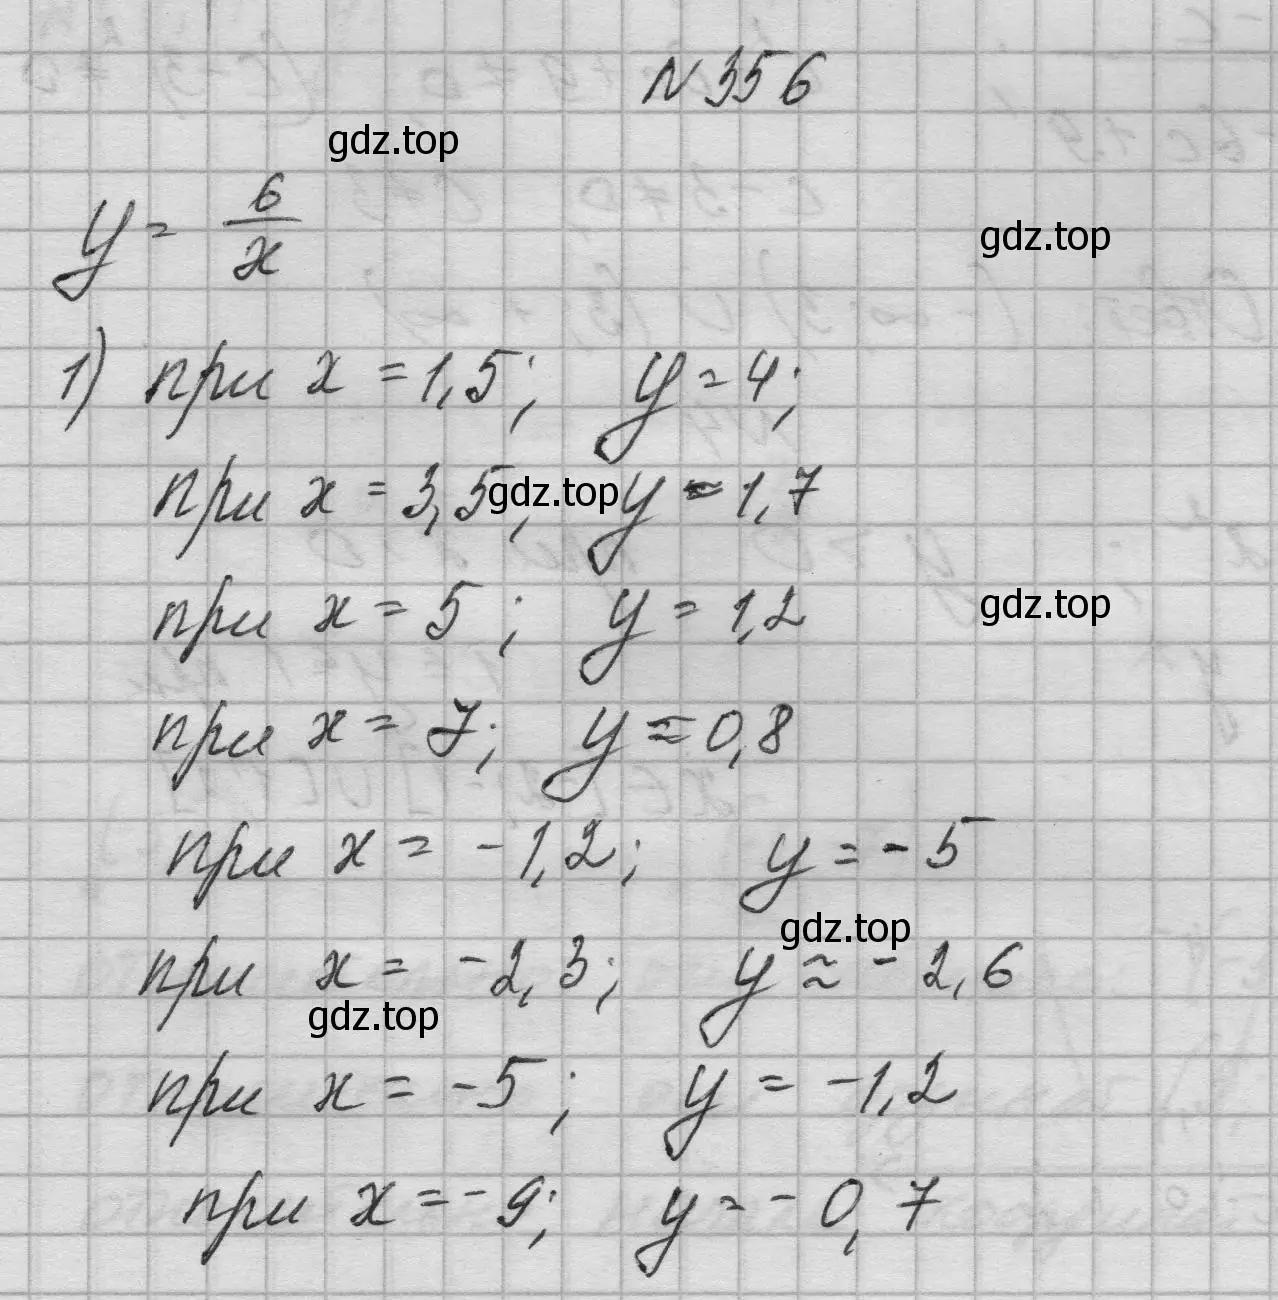 N 356
gdz.top
y = 6/x
gdz.top
1) при x = 1,5; y = 4;
при x = 3,5; y ≈ 1,7
gdz.top
при x = 5; y = 1,2
gdz.top
при x = 7; y ≈ 0,8
при x = -1,2; y = -5
gdz.top
при x = -2,3; y ≈ -2,6
gdz.top
при x = -5; y = -1,2
при x = -9; y = -0,7